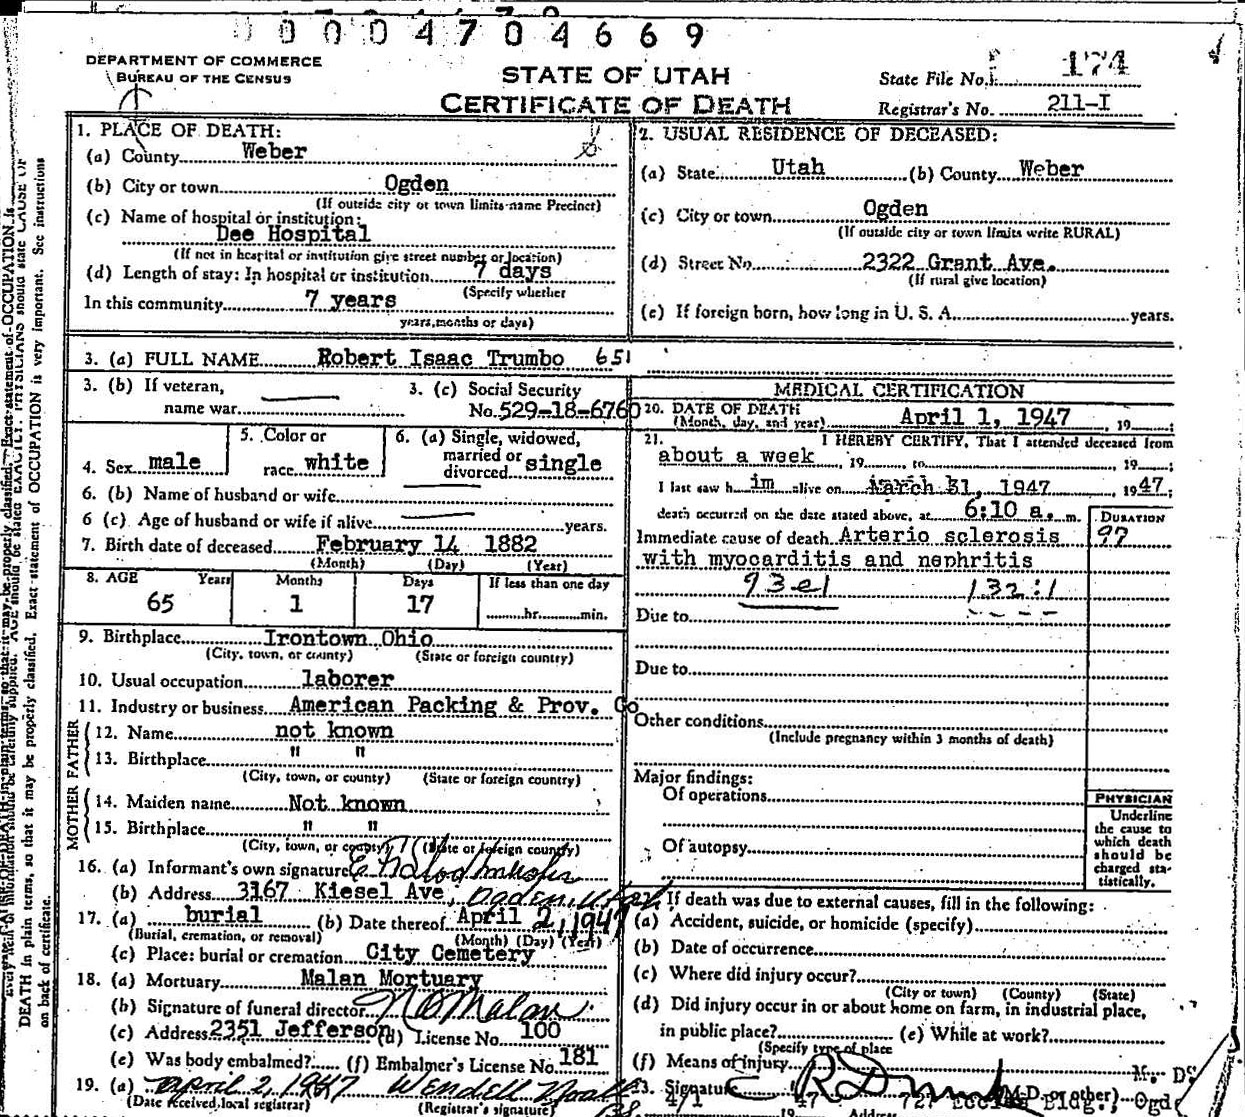 00004704669
DEPARTMENT OF COMMERCE
BUREAU OF THE CENSUS
STATE OF UTAH
CERTIFICATE OF DEATH
State File No. 174
Registrar's No. 211-I
1. PLACE OF DEATH:
(a) County Weber
(b) City or town Ogden
(If outside city or town limits-name Precinct)
(c) Name of hospital or institution:
Dee Hospital
(If not in hospital or institution give street number or location)
(d) Length of stay: In hospital or institution 7 days
(Specify whether
In this community 7 years
years, months or days)
2. USUAL RESIDENCE OF DECEASED:
(a) State Utah (b) County Weber
(c) City or town Ogden
(If outside city or town limits write RURAL)
(d) Street No. 2322 Grant Ave.
(If rural give location)
(e) If foreign born, how long in U. S. A. years.
3. (a) FULL NAME Robert Isaac Trumbo 651
3. (b) If veteran,
name war
3. (c) Social Security
No. 529-18-6760
4. Sex male
5. Color or
race white
6. (a) Single, widowed,
married or
divorced single
6. (b) Name of husband or wife
6 (c) Age of husband or wife if alive years.
7. Birth date of deceased February 14 1882
(Month) (Day) (Year)
8. AGE Years Months Days If less than one day
65 1 17 hr. min.
9. Birthplace Irontown Ohio
(City, town, or county) (State or foreign country)
10. Usual occupation laborer
11. Industry or business American Packing & Prov. Co
FATHER
12. Name not known
13. Birthplace " "
(City, town, or county) (State or foreign country)
MOTHER
14. Maiden name Not known
15. Birthplace " "
(City, town, or county) (State or foreign country)
16. (a) Informant's own signature
(b) Address 3167 Kiesel Ave, Ogden, Utah
17. (a) burial (b) Date thereof April 2, 1947
(Burial, cremation, or removal) (Month) (Day) (Year)
(c) Place: burial or cremation City Cemetery
18. (a) Mortuary Malan Mortuary
(b) Signature of funeral director Malan
(c) Address 2351 Jefferson (d) License No. 100
(e) Was body embalmed? (f) Embalmer's License No. 181
19. (a) April 2, 1947 Wendell
(Date received local registrar) (Registrar's signature)
MEDICAL CERTIFICATION
20. DATE OF DEATH
(Month, day, and year) April 1, 1947, 19 ;
21. I HEREBY CERTIFY, That I attended deceased from
about a week, 19 , to , 19 ;
I last saw h im alive on March 31, 1947, 1947;
death occurred on the date stated above, at 6:10 a. m.
DURATION
Immediate cause of death Arterio sclerosis
with myocarditis and nephritis
97
93e1 132:1
Due to
Due to
Other conditions
(Include pregnancy within 3 months of death)
Major findings:
Of operations
Of autopsy
PHYSICIAN
Underline
the cause to
which death
should be
charged sta-
tistically.
If death was due to external causes, fill in the following:
(a) Accident, suicide, or homicide (specify)
(b) Date of occurrence
(c) Where did injury occur?
(City or town) (County) (State)
(d) Did injury occur in or about home on farm, in industrial place,
in public place? (e) While at work?
(Specify type of place
(f) Means of injury
M. D.
23. Signature (M.D. or other)
4/1 47 Bldg., Ogde
19 Address
DEATH in plain terms, so that it may be properly classified. Exact statement of OCCUPATION is very important. See instructions
on back of certificate.